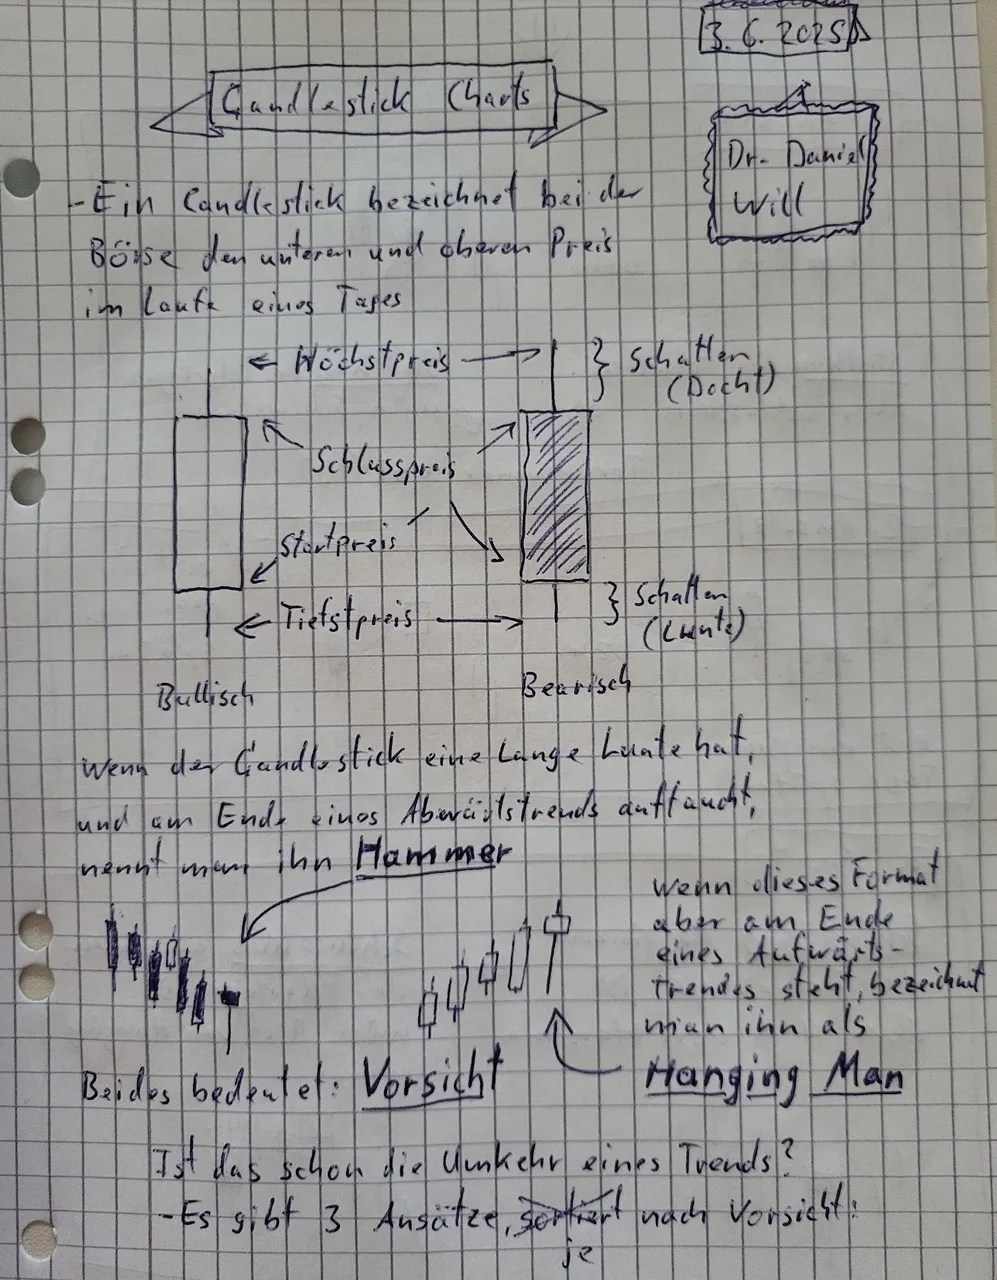 3.6.2025
Candlestick Charts
Dr. Daniel
Will
- Ein Candlestick bezeichnet bei der
Börse den unteren und oberen Preis
im Laufe eines Tages
← Höchstpreis →
} Schatten
(Docht)
Schlusspreis
Startpreis
← Tiefstpreis →
} Schatten
(Lunte)
Bullisch
Bearisch
Wenn der Candlestick eine Lange Lunte hat,
und am Ende eines Abwärtstrends auftaucht,
nennt man ihn Hammer
wenn dieses Format
aber am Ende
eines Aufwärts-
trendes steht, bezeichnet
man ihn als
Hanging Man
Beides bedeutet: Vorsicht
Ist das schon die Umkehr eines Trends?
- Es gibt 3 Ansätze, sortiert nach Vorsicht:
je